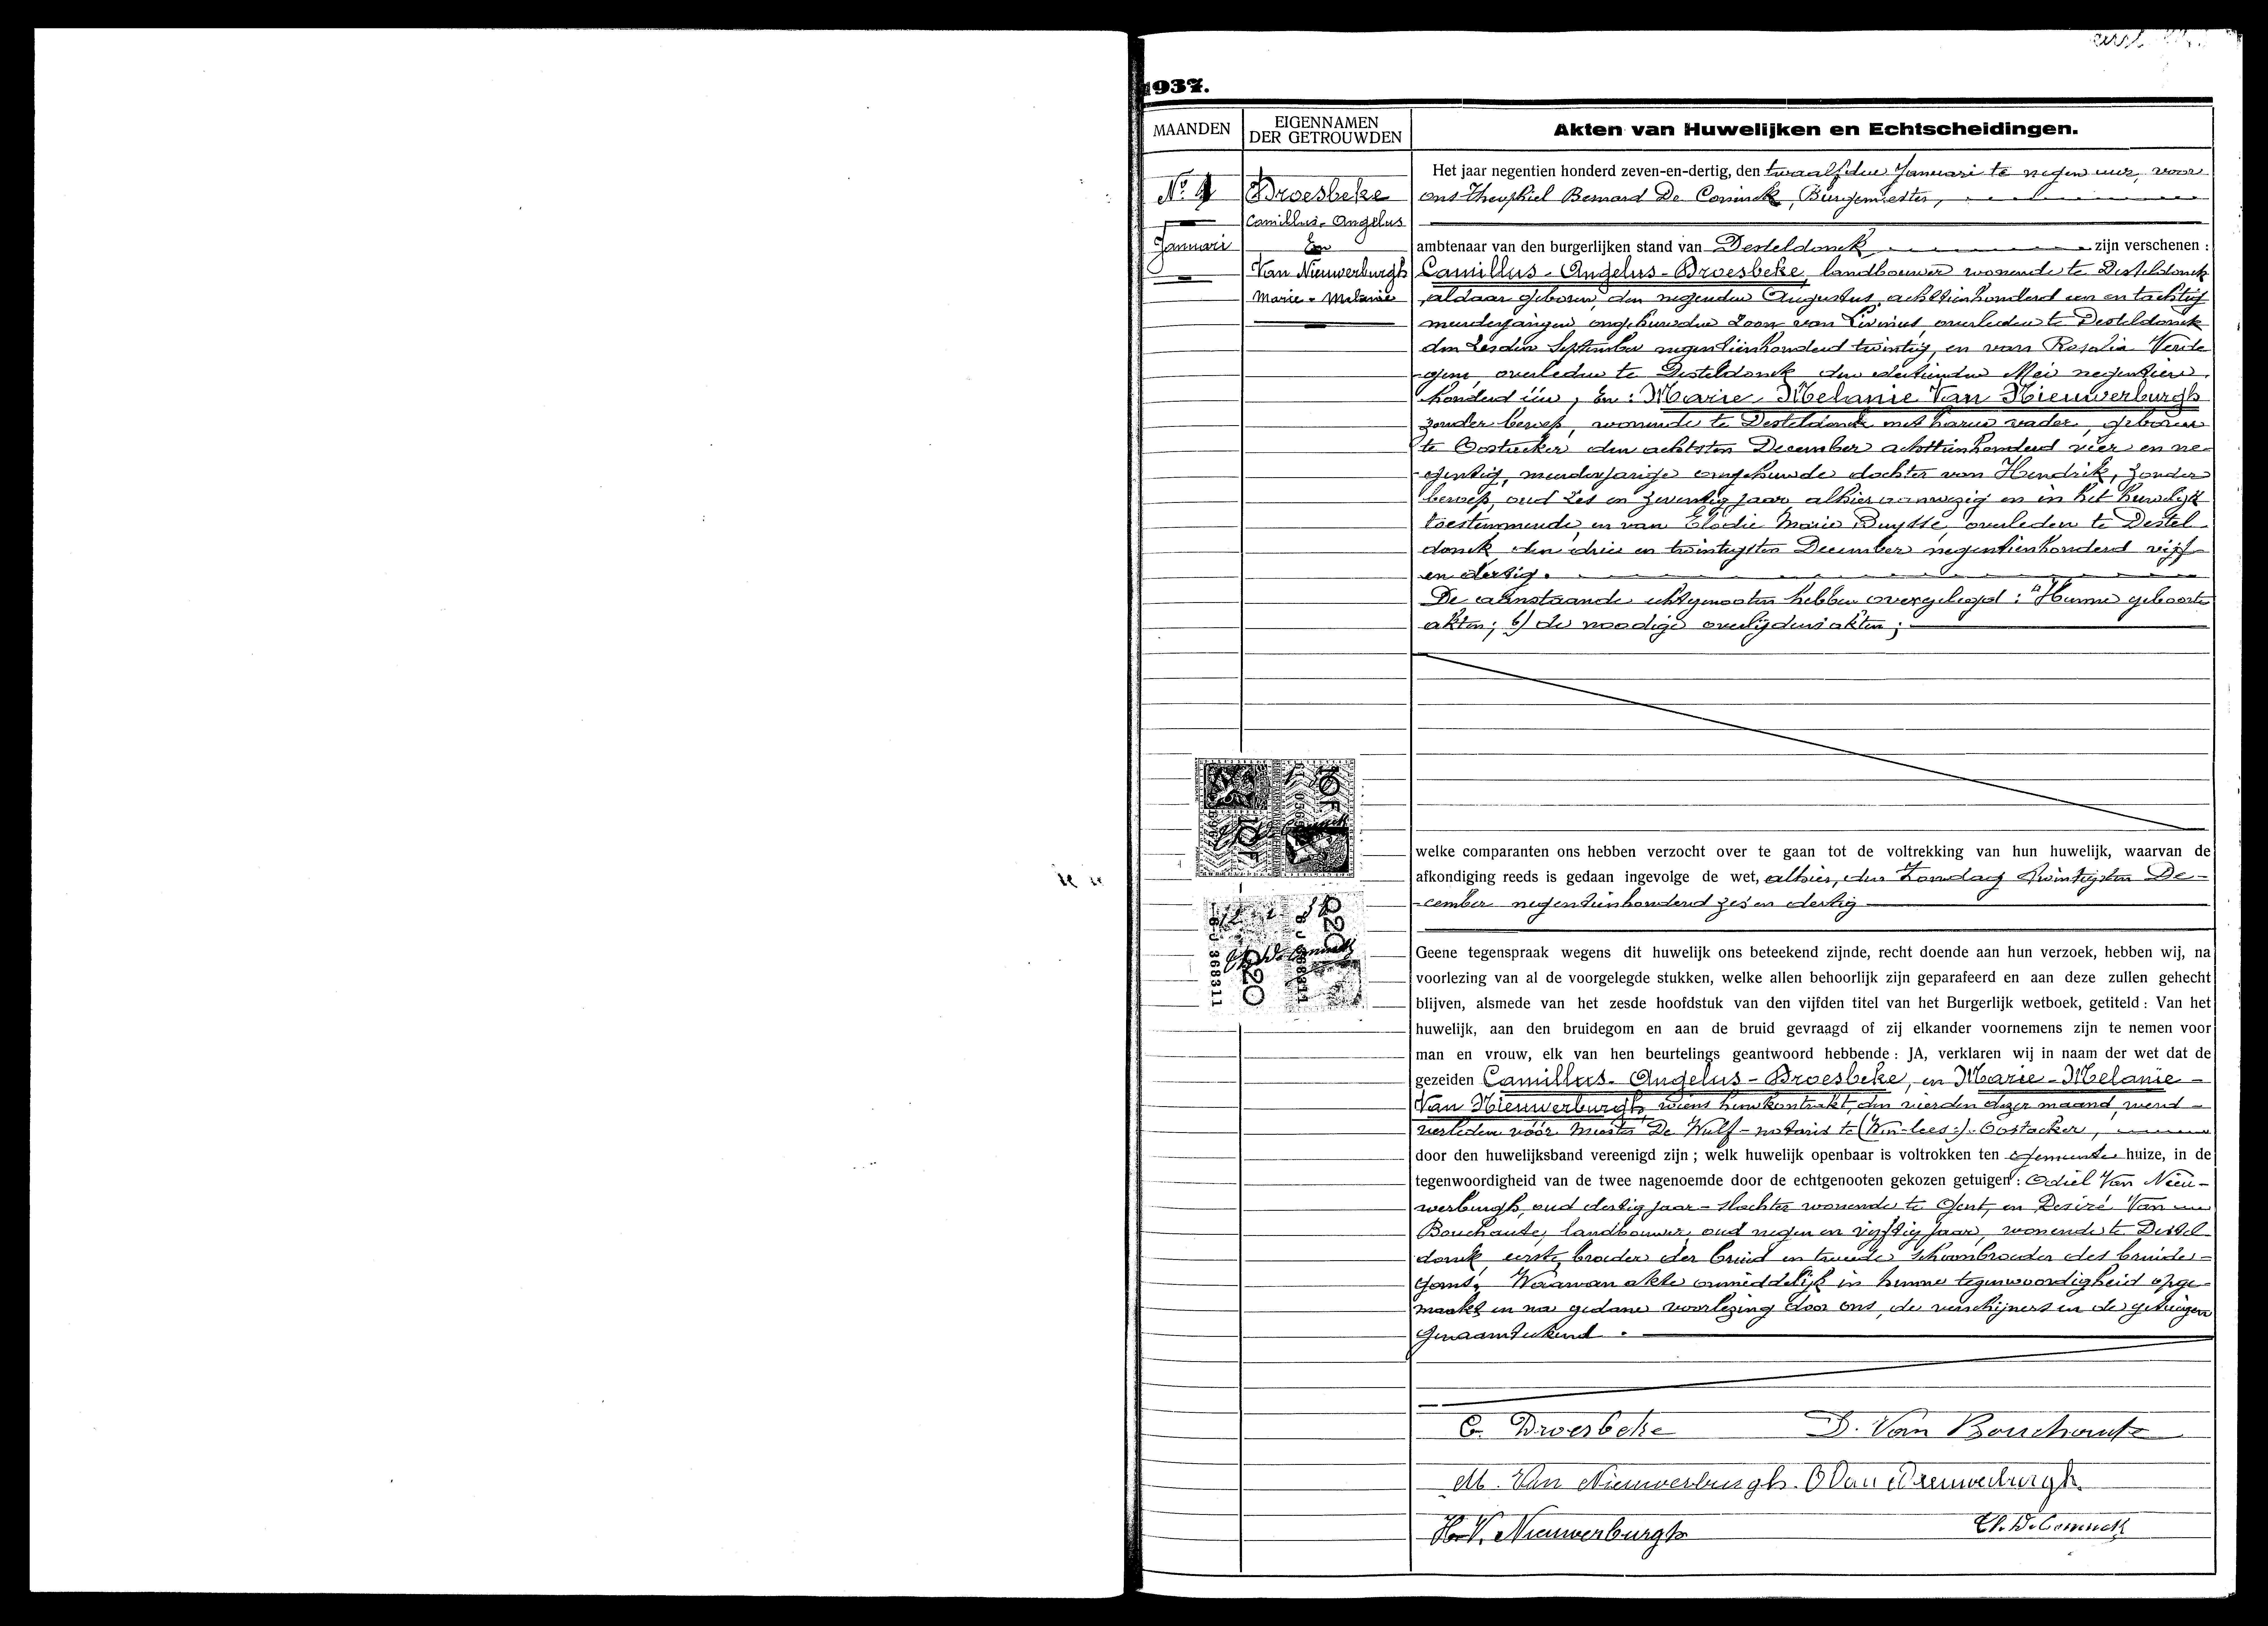 1937.
MAANDEN
EIGENNAMEN
DER GETROUWDEN
Akten van Huwelijken en Echtscheidingen.
No 1
Januari
Droesbeke
Camillus-Angelus
En
Van Nieuwerburgh
Marie-Melanie
Het jaar negentien honderd zeven-en-dertig, den twaalfden Januari te negen uur, voor
ons Theophiel Bernard De Coninck, Burgemeester,
ambtenaar van den burgerlijken stand van Desteldonck zijn verschenen :
Camillus-Angelus-Droesbeke, landbouwer wonende te Desteldonck
aldaar geboren den negenden Augustus achttienhonderd een en tachtig
meerderjarigen ongehuwden zoon van Livinus, overleden te Desteldonck
den zesden September negentienhonderd twintig, en van Rosalia Verde
gem, overleden te Desteldonck den dertienden Mei negentien
honderd één; En: Marie-Melanie Van Nieuwerburgh
zonder beroep, wonende te Desteldonck met haren vader, geboren
te Oostacker den achtsten December achttienhonderd vier en ne-
gentig, meerderjarige ongehuwde dochter van Hendrik, zonder
beroep, oud zes en zeventig jaar alhier aanwezig en in het huwelijk
toestemmende, en van Elodie Marie Buysse, overleden te Destel
donck den drie en twintigsten December negentienhonderd vijf
en dertig.
De aanstaande echtgenooten hebben overgelegd: a) Hunne geboorte
akten; b) de noodige overlijdensakten;
welke comparanten ons hebben verzocht over te gaan tot de voltrekking van hun huwelijk, waarvan de
afkondiging reeds is gedaan ingevolge de wet, alhier, den Zondag twintigsten De-
cember negentienhonderd zes en dertig
Geene tegenspraak wegens dit huwelijk ons beteekend zijnde, recht doende aan hun verzoek, hebben wij, na
voorlezing van al de voorgelegde stukken, welke allen behoorlijk zijn geparafeerd en aan deze zullen gehecht
blijven, alsmede van het zesde hoofdstuk van den vijfden titel van het Burgerlijk wetboek, getiteld : Van het
huwelijk, aan den bruidegom en aan de bruid gevraagd of zij elkander voornemens zijn te nemen voor
man en vrouw, elk van hen beurtelings geantwoord hebbende : JA, verklaren wij in naam der wet dat de
gezeiden Camillus-Angelus-Droesbeke, en Marie-Melanie-
Van Nieuwerburgh, wiens huwkontrakt den vierden dezer maand, werd
verleden vóór Meester De Wulf-notaris te (Wn-lees:) Oostacker,
door den huwelijksband vereenigd zijn ; welk huwelijk openbaar is voltrokken ten Gemeente huize, in de
tegenwoordigheid van de twee nagenoemde door de echtgenooten gekozen getuigen : Odiel Van Nieu-
werburgh, oud dertig jaar-slachter wonende te Gent, en Desiré Van
Bouchaute, landbouwer, oud negen en vijftig jaar, wonende te Destel
donck, eerste broeder der bruid en tweede schoonbroeder des bruide-
goms. Waarvan akte onmiddelijk in hunne tegenwoordigheid opge-
maakt en na gedane voorlezing door ons, de verschijners en de getuigen
genaamteekend.
10 F
10 F
12 1 37
Th. De Coninck
220
220
6 J 368311
C. Droesbeke
D. Van Bouchaute
M. Van Nieuwerburgh.
O Van Nieuwerburgh.
H. V. Nieuwerburgh
Th. De Coninck